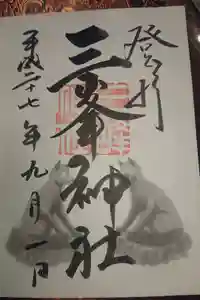 登拝
三峯神社
平成二十七年九月一日